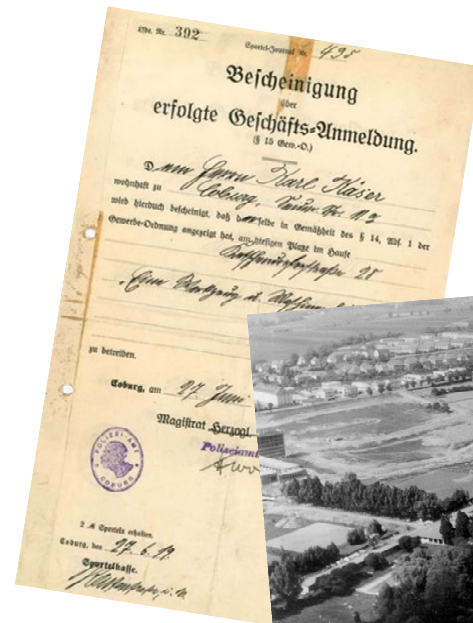 Lfde. Nr. 392
Sportel-Journal Nr. 495
Bescheinigung
über
erfolgte Geschäfts-Anmeldung.
(§ 15 Gew.-O.)
Dem Herrn Karl Käser
wohnhaft zu Coburg,
wird hierdurch bescheinigt, daß derselbe in Gemäßheit des § 14, Abs. 1 der
Gewerbe-Ordnung angezeigt hat, am hiesigen Platze im Hause
28
Eine Werkzeug u.
zu betreiben.
Coburg, am 27. Juni
Magistrat Herzogl.
Polizeiamt
POLIZEI-AMT COBURG
2 M Sporteln erhalten.
Coburg, den 27.6.19.
Sportelkasse.